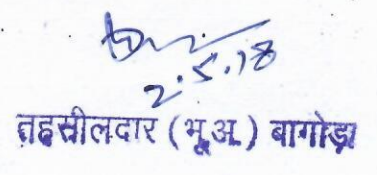 2.5.18
तहसीलदार (भू.अ.) बागोड़ा